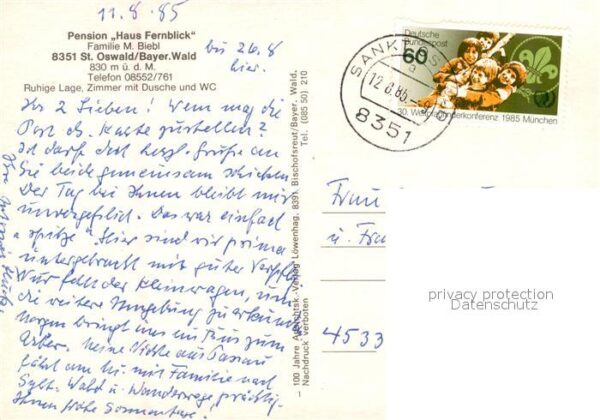 11.8.85
Pension „Haus Fernblick"
Familie M. Biebl
8351 St. Oswald/Bayer.Wald
830 m ü. d. M.
Telefon 08552/761
Ruhige Lage, Zimmer mit Dusche und WC
bis 26.8
hier.
Ihr 2 Lieben! Wem mag die
Post d. Karte zustellen?
Ich darf doch herzl. Grüße an
Sie beide gemeinsam schicken
Der Tag bei Ihnen bleibt mir
unvergeßlich. Das war einfach
"spitze". Hier sind wir prima
untergebracht mit guter Verpfl.
Nur fehlt der Kleinwagen, um
die weitere Umgebung zu erkunden
morgen bringt uns ein Bus zum
Arber. Meine Nichte aus Passau
fährt am mit Familie nach
Sylt. Wald u. Wanderwege prächtig
Ihnen frohe Sommertage.
Ihre
100 Jahre Ansichtsk.-Verlag Löwenhag, 8391 Bischofsreut/Bayer. Wald, Tel. (085 50) 210
Nachdruck verboten
Deutsche
Bundespost
60
30. Weltpfadfinderkonferenz 1985 München
SANKT OS
a
12.8.85
8351
Frau
u. Frau
4533
privacy protection
Datenschutz